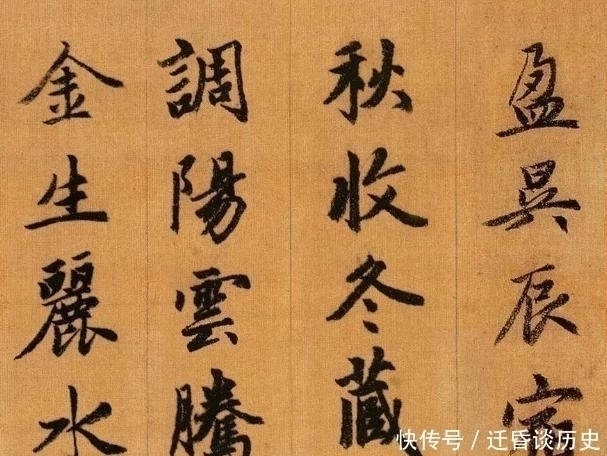 盈昃辰宿
秋收冬藏
調陽雲騰
金生麗水
快传号 / 迁昏谈历史